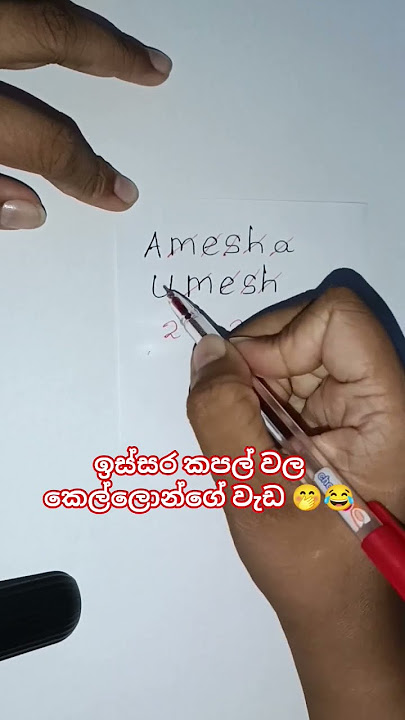 Amesha
Umesh
2
ඉස්සර කපල් වල
කෙල්ලොන්ගේ වැඩ 🤭😂